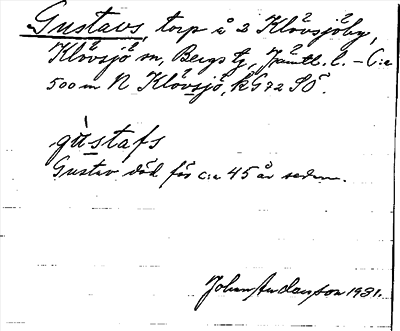 Gustavs, torp å 2 Klövsjöby,
Klövsjö sn, Bergs tg, Jämtl. l. – C:a
500 m N Klövsjö, k G72 SÖ.
gùstafs
Gustav död för c:a 45 år sedan.
Johan Andersson 1931.